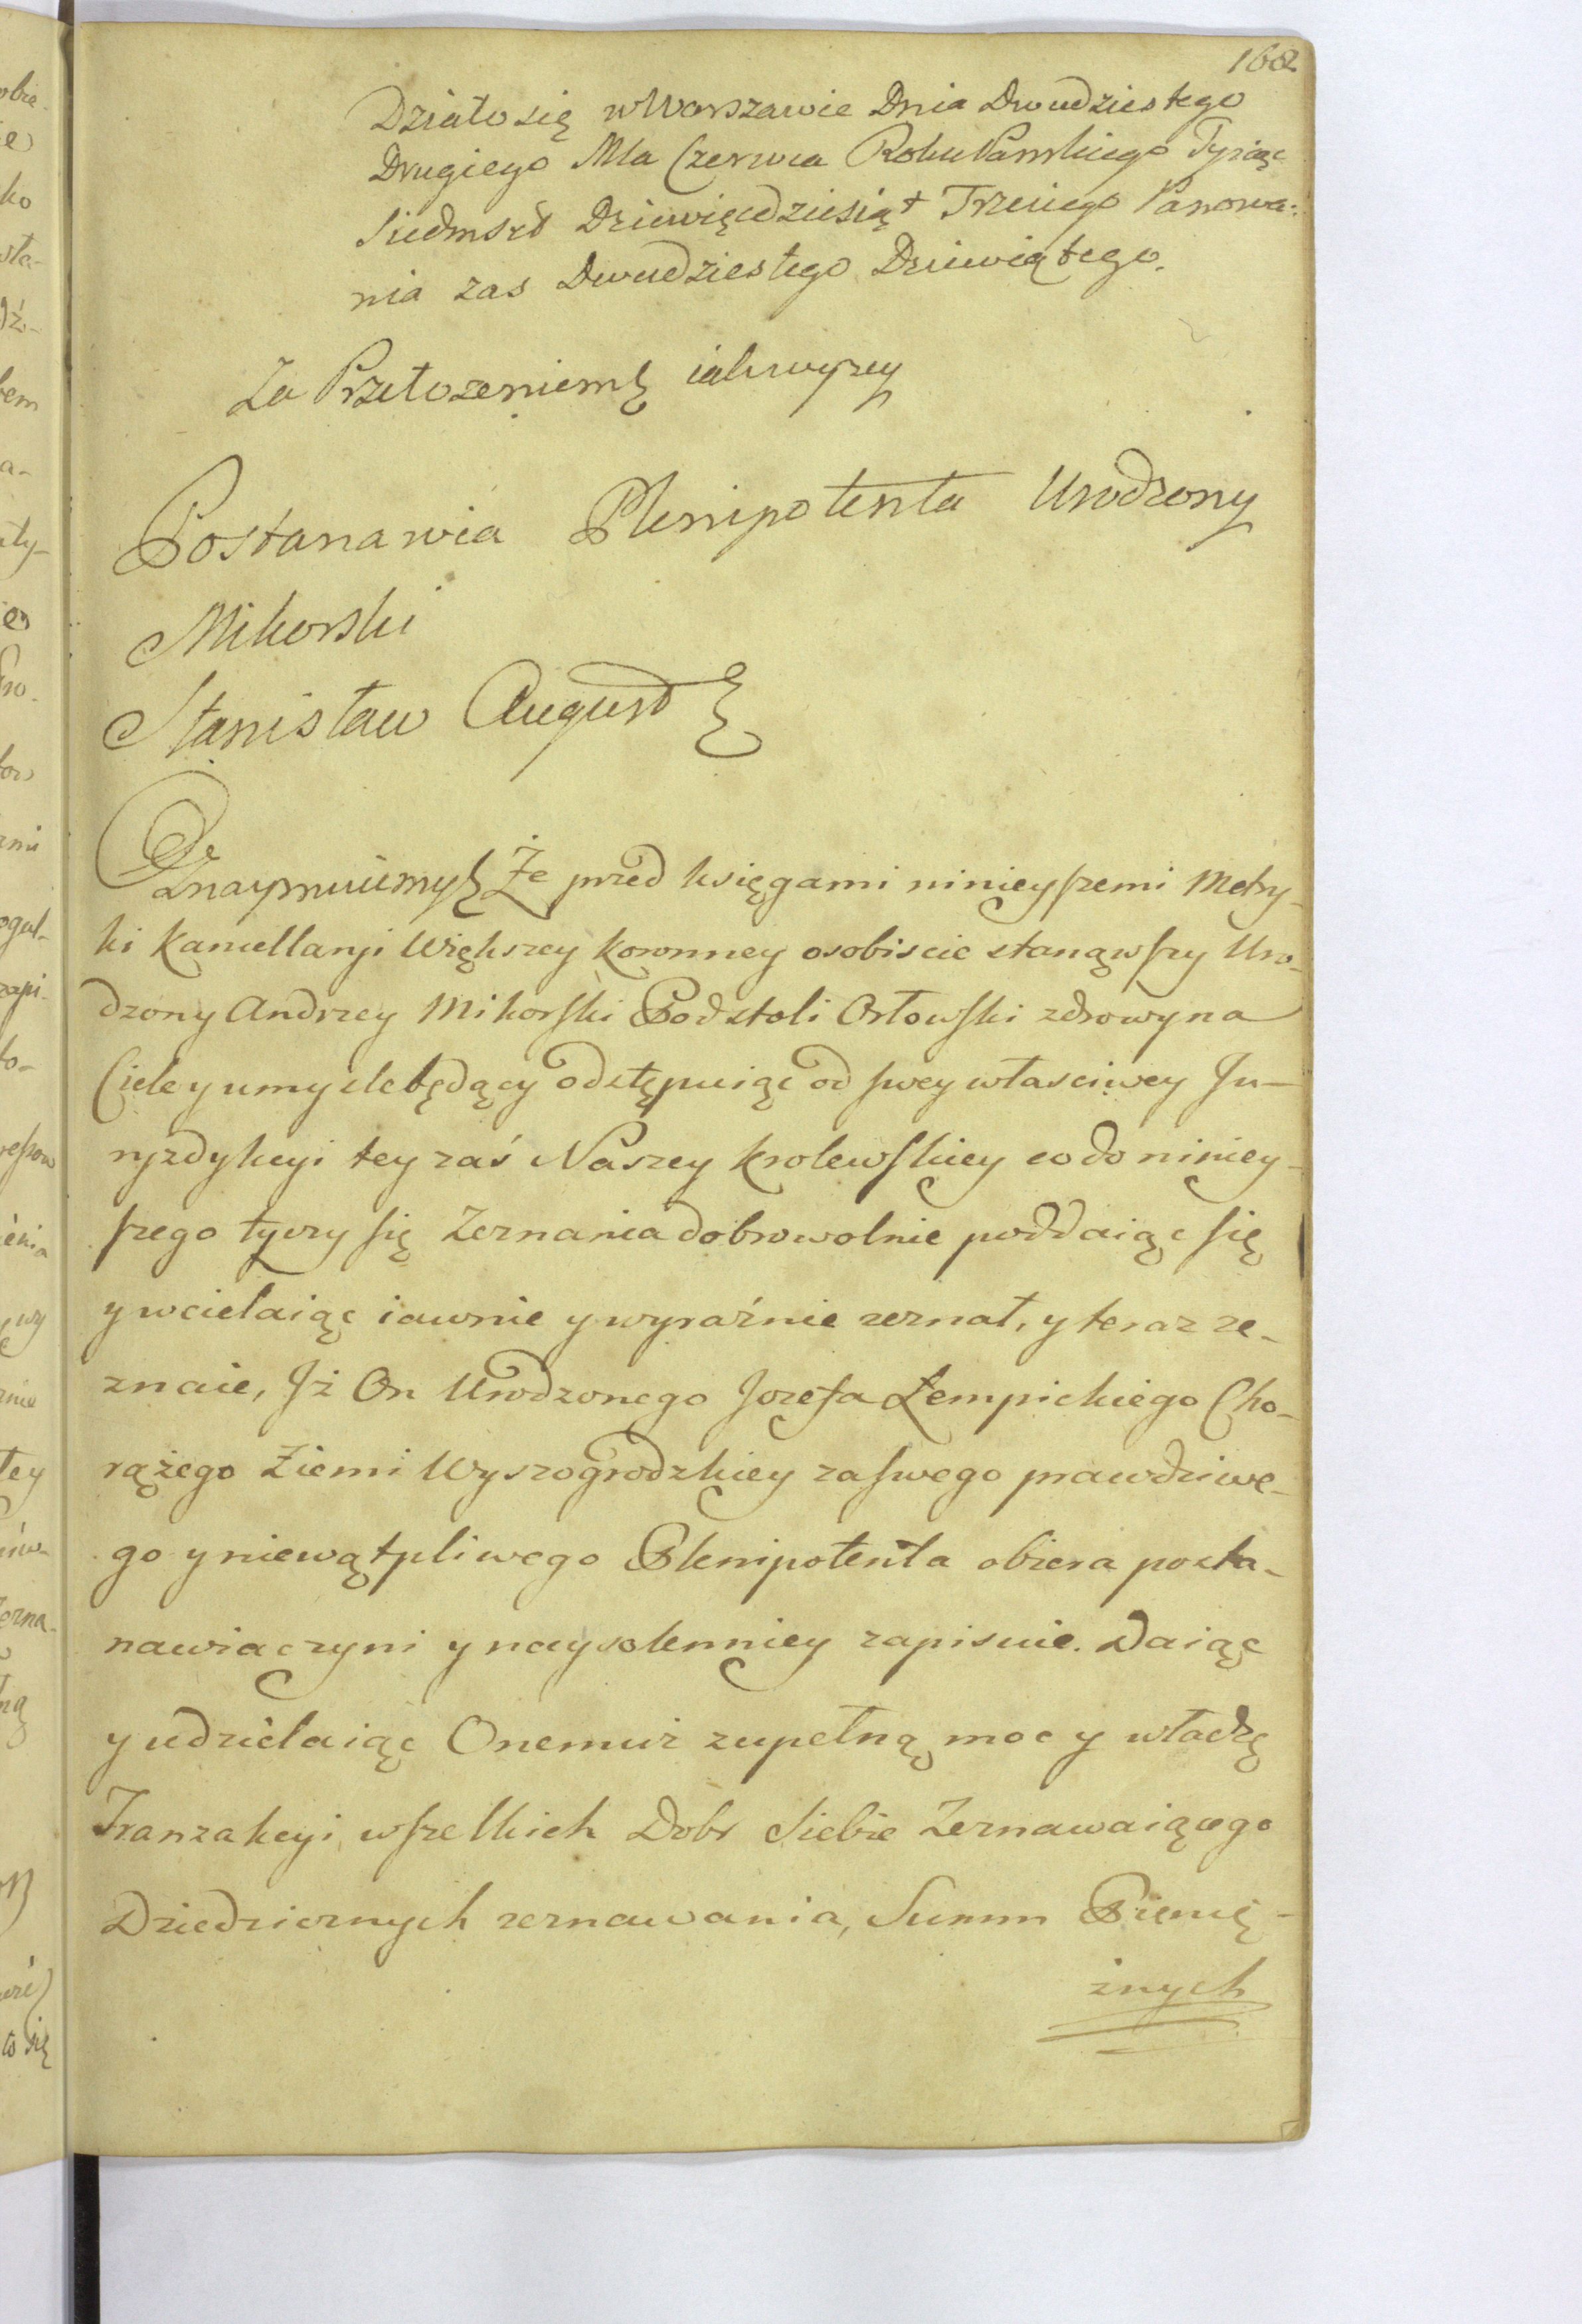 162
Działo się w Warszawie Dnia Dwudziestego
Drugiego Mca Czerwca Roku Pańskiego Tysiąc
Siedmset Dziewięcdziesiąt Trzeciego Panowa-
nia zas Dwudziestego Dziewiątego.
Za Przełożeniem iakwyzey
Postanawia Plenipotenta Urodzony
Mikorski
Stanisław August
Oznaymuiemy Że przed księgami ninieyszemi Metry-
ki Kancellaryi Większey Koronney osobiscie stanąwszy Uro-
dzony Andrzey Mikorski Podstoli Orłowski zdrowy na
Ciele y umysle będący odstępuiąc od swey własciwey Ju-
ryzdykcyi tey zaś Naszey Krolewskiey co do niniey-
szego tyczy się Zeznania dobrowolnie poddaiąc się
y wcielaiąc iawnie y wyraźnie zeznał, y teraz ze-
znaie, Jż On Urodzonego Jozefa Łempickiego Cho-
rążego Ziemi Wyszogrodzkiey za swego prawdziwe-
go y niewątpliwego Plenipotenta obiera posta-
nawia czyni y naysolenniey zapisuie. Daiąc
y udzielaiąc Onemuż zupełną moc y władzę
Tranzakcyi wszelkich Dobr Siebie Zeznawaiącego
Dziedzicznych zeznawania, Summ Pienię-
żnych